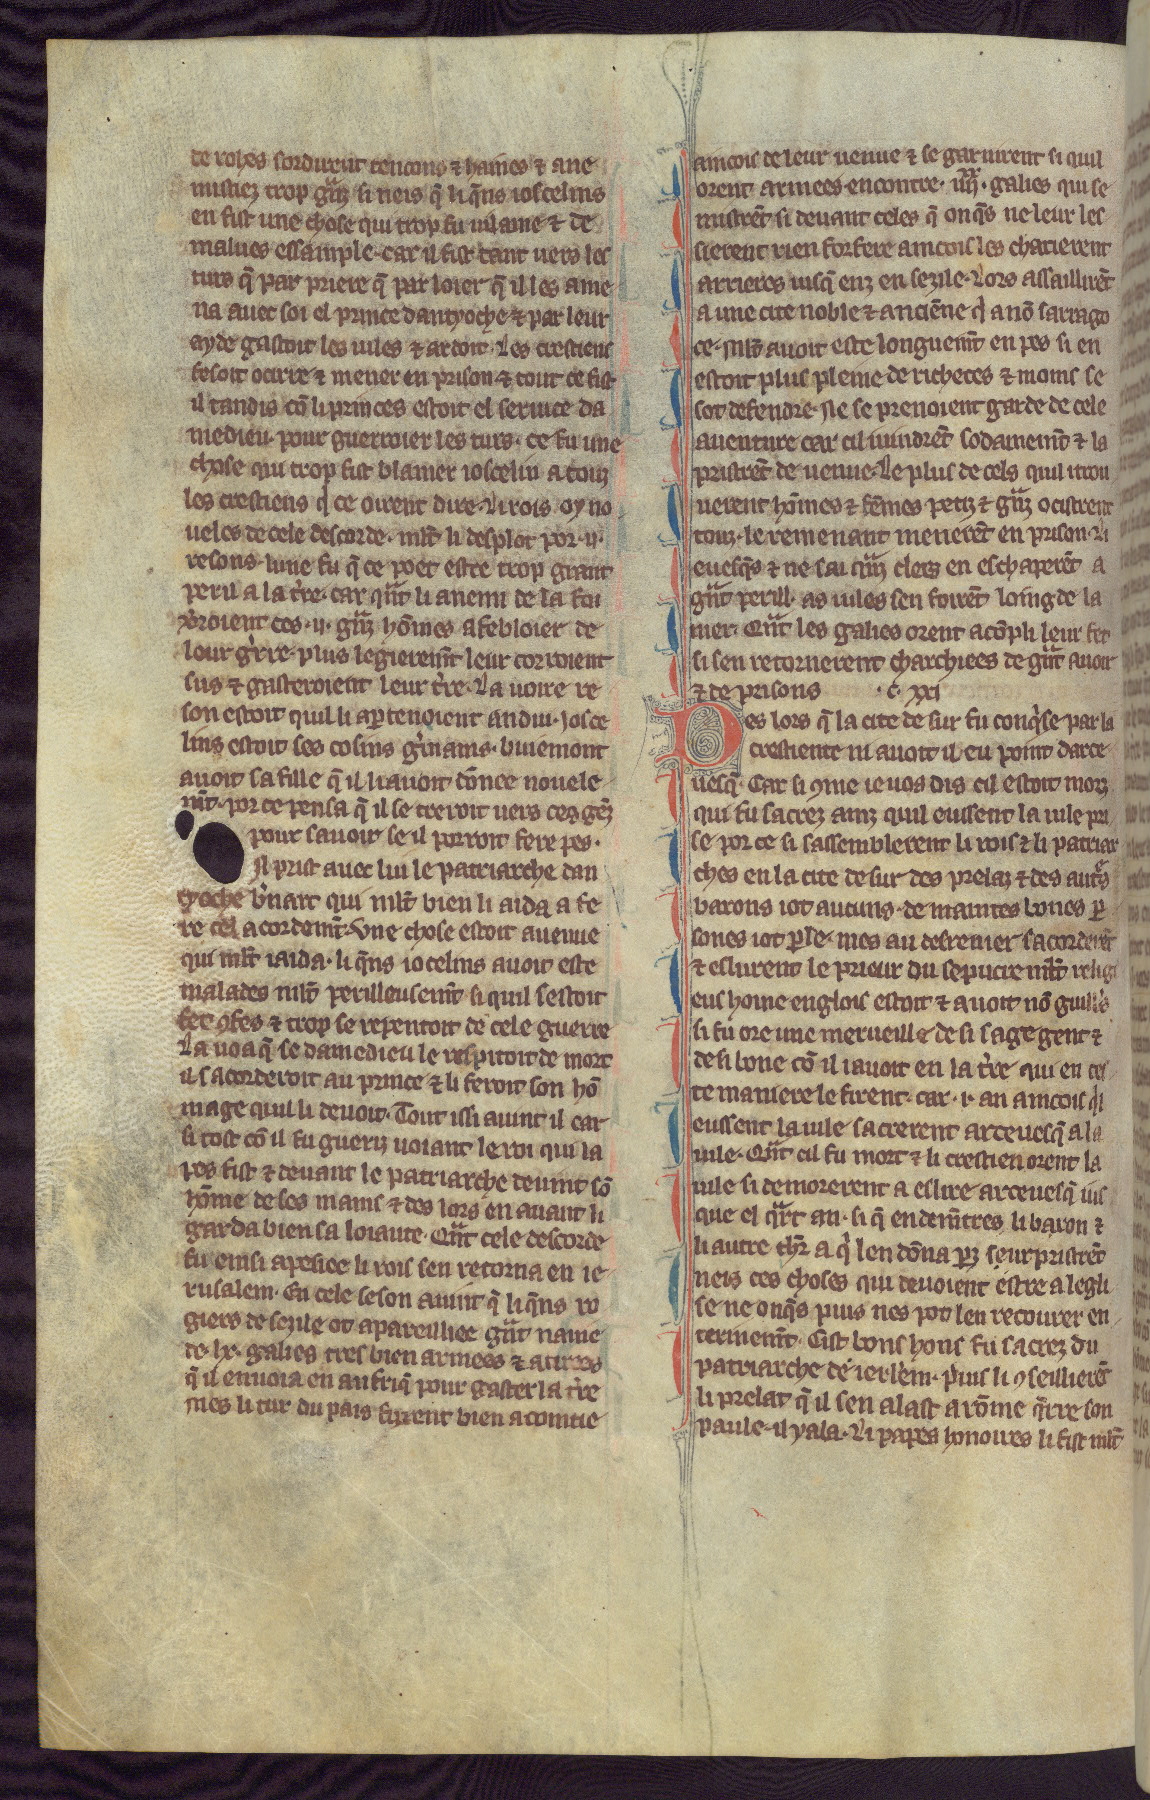 de rohes sordirent tencons ⁊ haines ⁊ ane
mistiez trop gñz si neis q̃ li q̃ns ioscelins
en fist une chose qui trop fu uilaine ⁊ de
malues essample. car il fist tant uers les
turs q̃ par priere q̃ par loier q̃ il les ame
na auec soi el prince dantyoche ⁊ par leur
ayde gastoit les uiles ⁊ ardoit. Les crestiens
fesoit ocirre ⁊ mener en prison ⁊ tout ce fist
il tandis cõ li princes estoit el seruice da
medieu. pour guerroier les turs. ce fu une
chose qui trop fist blamer ioscelin a touz
les crestiens q̇ ce oirent dire. Li rois oy no
ueles de cele descorde. mlt̃ li desplot por .ii.
resons. lune fu q̃ ce poet estre trop grant
peril a la t̃re. car qũt li anemi de la foi
uerroient ces .ii. gñz hõmes afebloier de
lour g̃rre. plus legierem̃t leur corroient
sus ⁊ gasteroient leur t̃re. La uoire re
son estoit quil li ap̃tenoient andui. Josce
lins estoit ses cosins g̃mains. buiemont
auoit sa fille q̃ il li auoit dõnee nouele
m̃t. por ce pensa q̃ il se treroit uers ces gẽz
pour sauoir se il porroit fere pes.
Il prist auec lui le patriarche dan
tyoche b̃nart qui mlt̃ bien li aida a fe
re cel acordem̃t. Vne chose estoit auenue
qui mlt̃ i aida. li q̃ns iocelins auoit este
malades mlt̃ perilleusem̃t si quil sestoit
fet ꝯfes ⁊ trop se repentoit de cele guerre
La uoa q̃ se damedieu le respitoit de mort
il sacorderoit au prince ⁊ li feroit son hõ
mage quil li deuoit. Tout issi auint il car
si tost cõ il fu gueriz uoiant le roi qui la
pes fist ⁊ deuant le patriarche deuint sõ
hõme de ses mains ⁊ des lors en auant li
garda bien sa loiaute. Qũt cele descorde
fu einsi apesiee li rois sen retorna en ie
rusalem. En cele seson auint q̃ li q̃ns ro
giers de sezile ot apareilliee gñt nauie
de .lx. galies tres bien armees ⁊ atirees
q̃ il enuoia en aufriq̃ pour gaster la t̃re
Mes li tur du pais furent bien acointie
aincois de leur uenue ⁊ se garnirent si quil
orent armees encontre .iiii.xx. galies qui se
mistrẽt si deuant celes q̃ onq̃s ne leur les
sierent rien forfere aincois les chacierent
arrieres iusq̃ enz en sezile. Lors assaillirẽt
a une cite noble ⁊ anciẽne q̇ a nõ sarrago
ce. Mlt̃ auoit este longuem̃t en pes si en
estoit plus pleine de richeces ⁊ moins se
sot defendre. Ne se prenoient garde de cele
auenture car cil uindrẽt sodainem̃t ⁊ la
pristrẽt de uenue. Le plus de cels quil i trou
uerent hõmes ⁊ fẽmes petiz ⁊ gñz ocistrent
touz. le remenant menerẽt en prison. Li
euesq̃s ⁊ ne sai quãz clers en eschaperẽt a
gñt perill. as uiles sen foirẽt loing de la
mer. Qũt les galies orent acõpli leur fet
si sen retornerent charchiees de gñt auoir
⁊ de prisons .c. xxi
Des lors q̃ la cite de sur fu conq̃se par la
crestiente ni auoit il eu point darce
uesq̃. Car si ꝯme ie uos dis cil estoit morz
qui fu sacrez ainz quil eussent la uile pri
se. por ce si sassemblerent li rois ⁊ li patriar
ches en la cite de sur des prelaz ⁊ des aut̃s
barons i ot aucuns. de maintes bones p̃
sones i ot p̃le. mes au desrenier sacorderẽt
⁊ eslurent le prieur du sepucre mlt̃ religi
eus home englois estoit ⁊ auoit nõ guill̃s
si fu ore une merueille de si sage gent ⁊
de si bone cõ il i auoit en la t̃re qui en ce
te maniere le firent. car .i. an aincois q̃l
eussent la uile sacrerent arceuesq̃ a la
uile. Qũt cil fu mort ⁊ li crestien orent la
uile si demorerent a eslire arceuesq̃ ius
que el q̃rt an. si q̃ endem̃tres li baron ⁊
li autre ch̃r a q̇ len dõna parz seur pristrẽt
neis ces choses qui deuoient estre a legli
se ne onq̃s puis nes pot len recourer en
terinem̃t. Cist bons hons fu sacrez du
patriarche de ierl̃em. Puis li ꝯseillierẽt
li prelat q̃ il sen alast a rõme q̃rre son
paule. il y ala. Li papes honoires li fist mlt̃